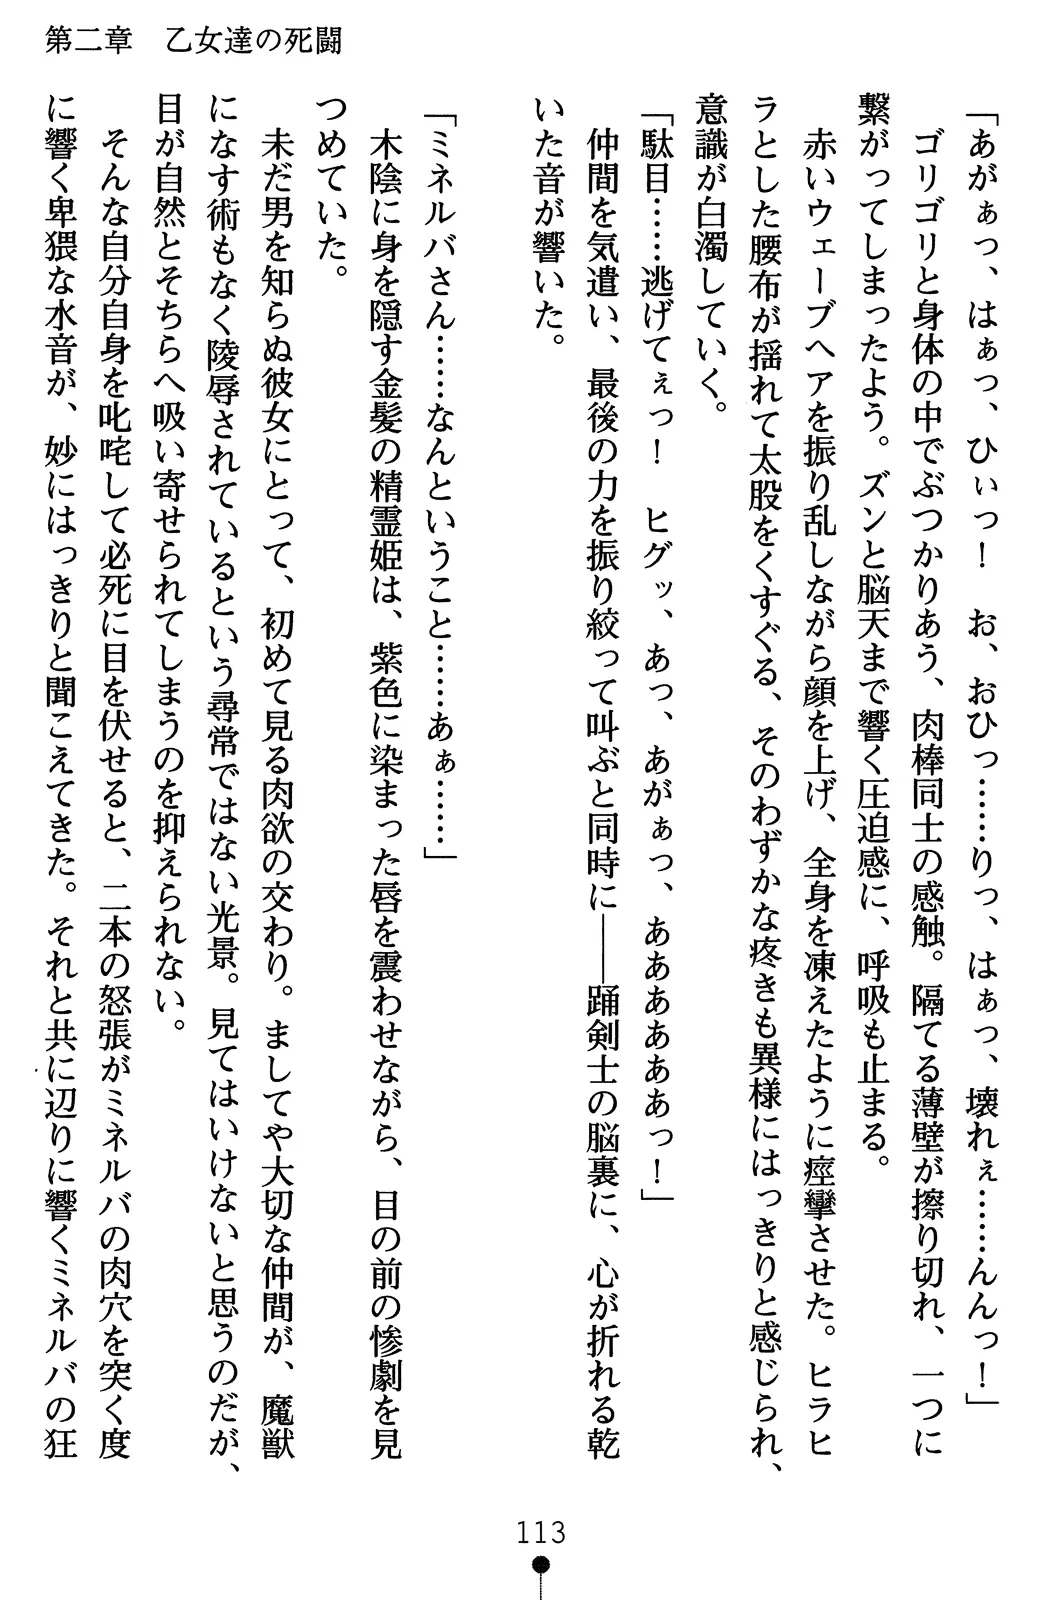 第二章　乙女達の死闘
「あがぁっ、はぁっ、ひぃっ！　お、おひっ……りっ、はぁっ、壊れぇ……んんっ！」
　ゴリゴリと身体の中でぶつかりあう、肉棒同士の感触。隔てる薄壁が擦り切れ、一つに
繋がってしまったよう。ズンと脳天まで響く圧迫感に、呼吸も止まる。
　赤いウェーブヘアを振り乱しながら顔を上げ、全身を凍えたように痙攣させた。ヒラヒ
ラとした腰布が揺れて太股をくすぐる、そのわずかな疼きも異様にはっきりと感じられ、
意識が白濁していく。
「駄目……逃げてぇっ！　ヒグッ、あっ、あがぁっ、ああああああっ！」
　仲間を気遣い、最後の力を振り絞って叫ぶと同時に――踊剣士の脳裏に、心が折れる乾
いた音が響いた。
「ミネルバさん……なんということ……あぁ……」
　木陰に身を隠す金髪の精霊姫は、紫色に染まった唇を震わせながら、目の前の惨劇を見
つめていた。
　未だ男を知らぬ彼女にとって、初めて見る肉欲の交わり。ましてや大切な仲間が、魔獣
になす術もなく陵辱されているという尋常ではない光景。見てはいけないと思うのだが、
目が自然とそちらへ吸い寄せられてしまうのを抑えられない。
　そんな自分自身を叱咤して必死に目を伏せると、二本の怒張がミネルバの肉穴を突く度
に響く卑猥な水音が、妙にはっきりと聞こえてきた。それと共に辺りに響くミネルバの狂
113